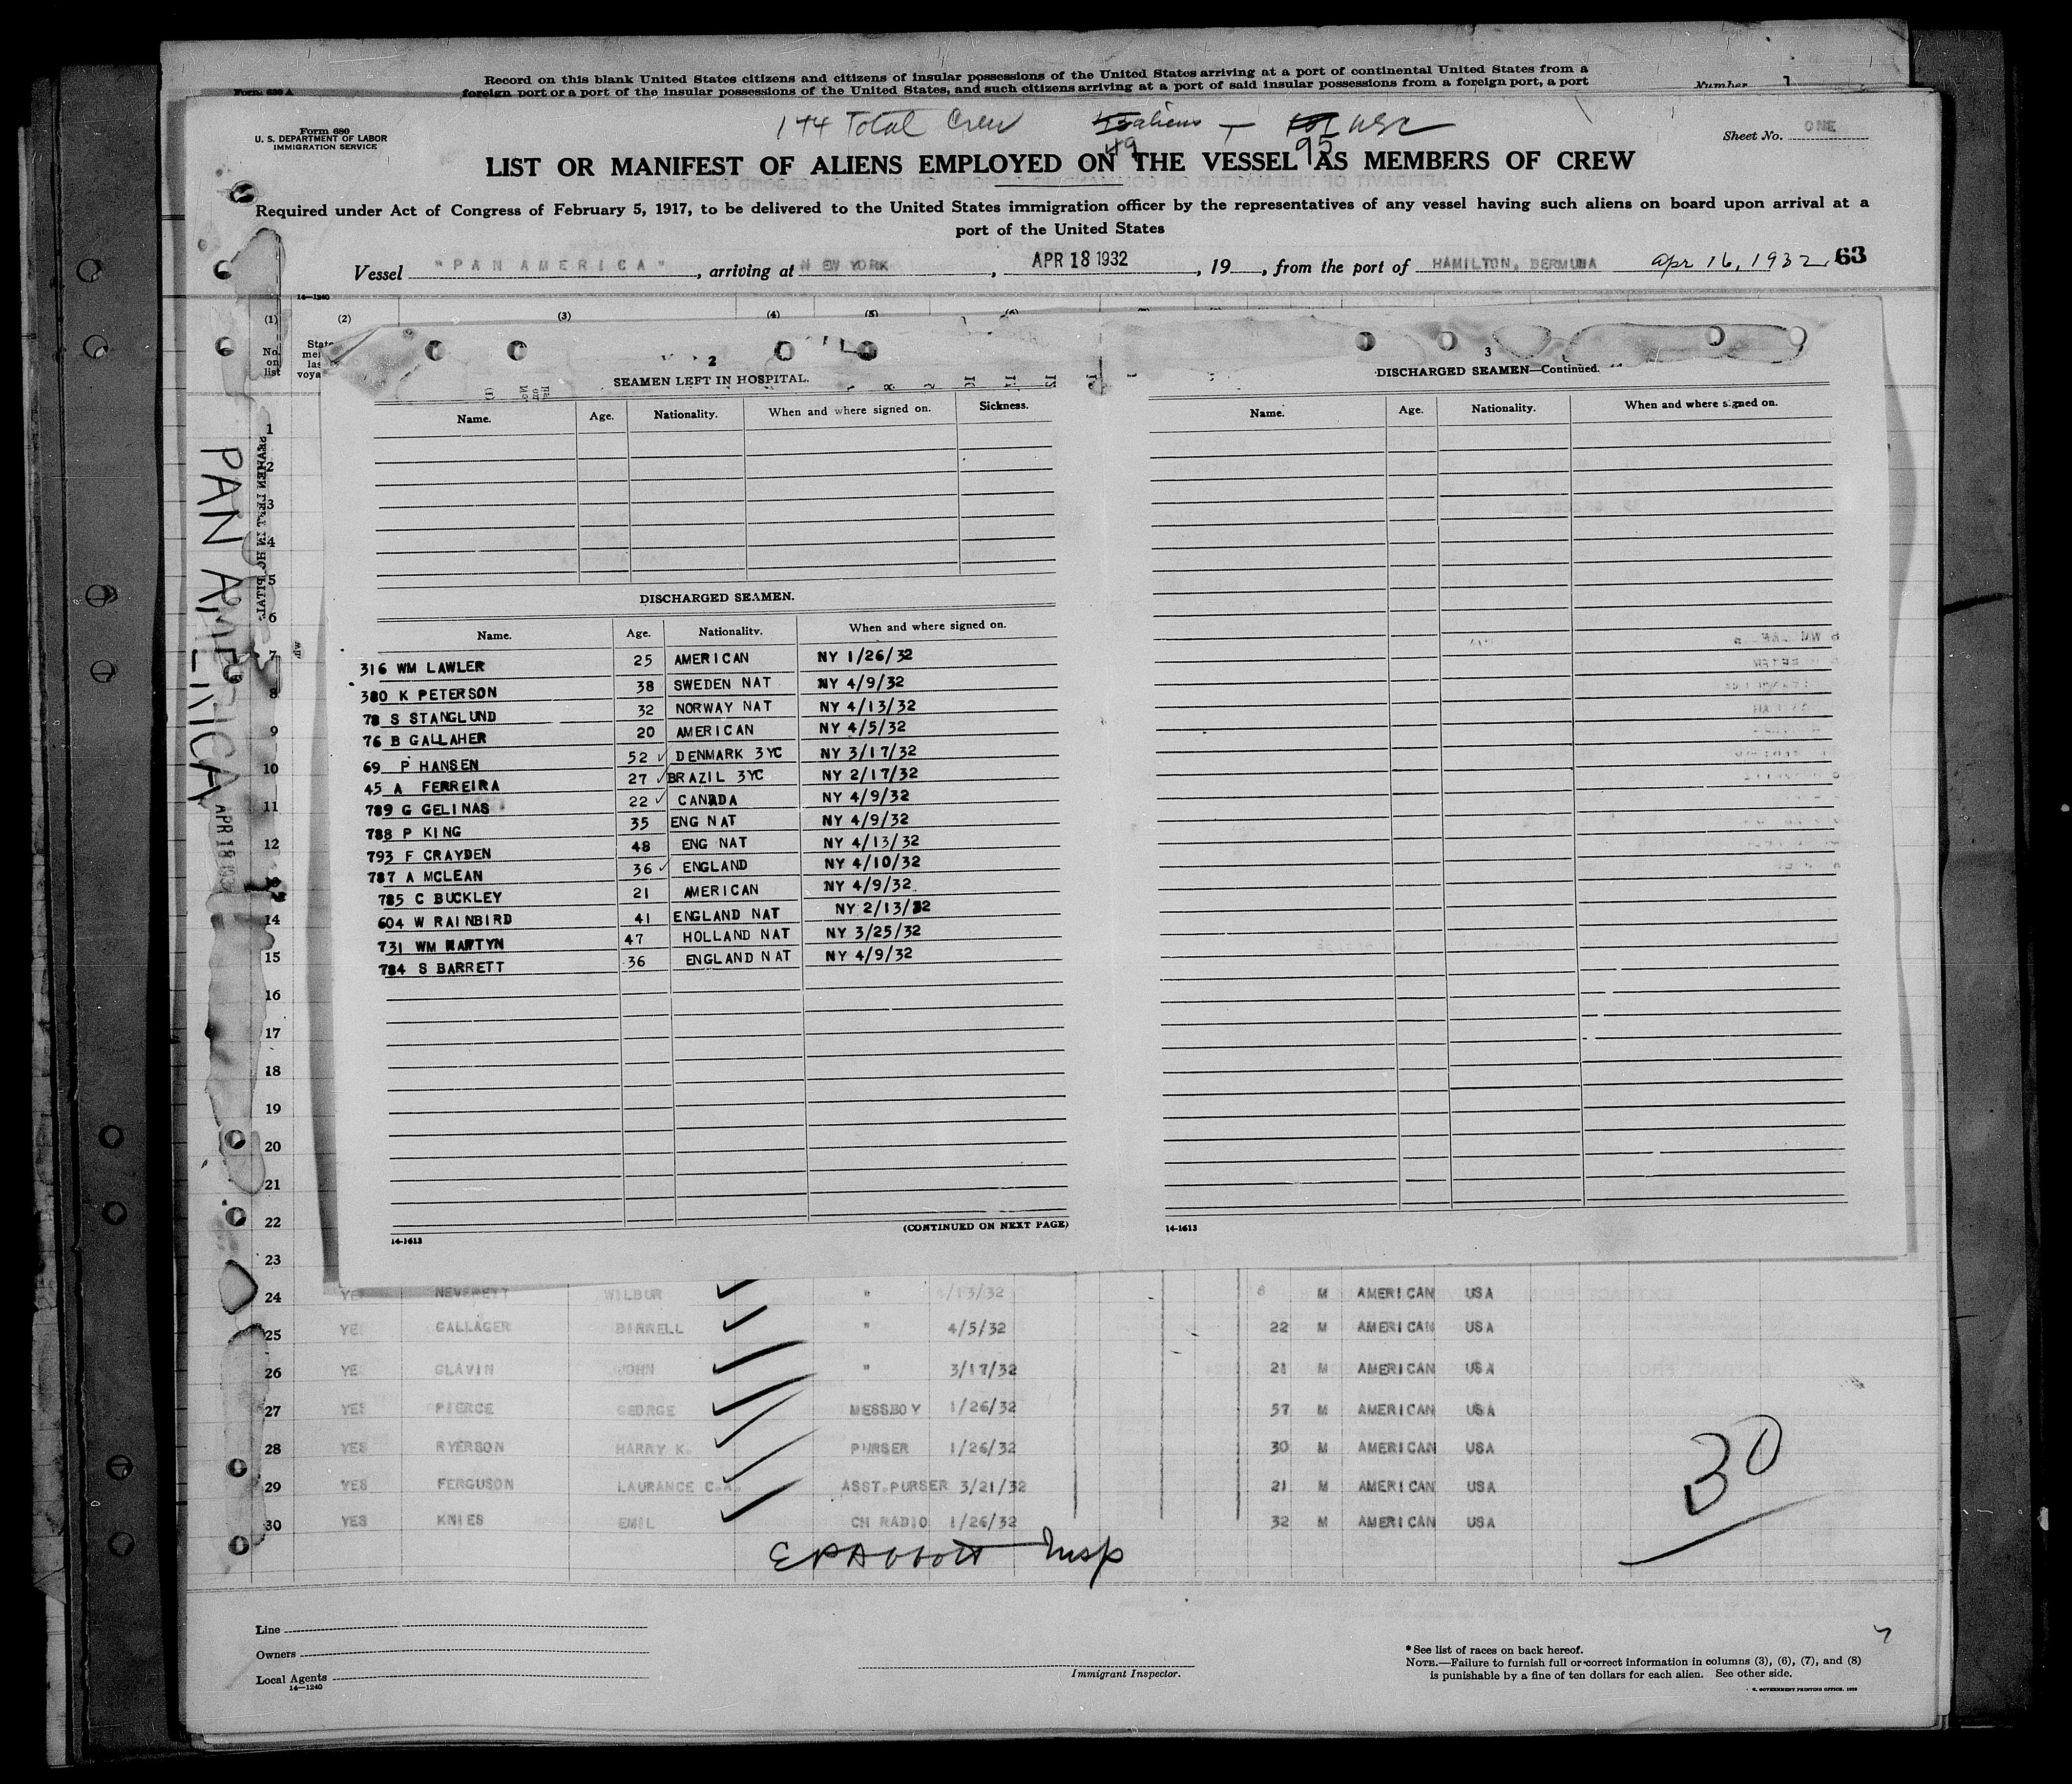 Record on this blank United States citizens and citizens of insular possessions of the United States arriving at a port of continental United States from a
foreign port or a port of the insular possessions of the United States, and such citizens arriving at a port of said insular possessions from a foreign port, a port
Form 630 A
Number 1
Form 680
U. S. DEPARTMENT OF LABOR
IMMIGRATION SERVICE
144 Total Crew aliens — USC
49 95
Sheet No. ONE
LIST OR MANIFEST OF ALIENS EMPLOYED ON THE VESSEL AS MEMBERS OF CREW
Required under Act of Congress of February 5, 1917, to be delivered to the United States immigration officer by the representatives of any vessel having such aliens on board upon arrival at a
port of the United States
Vessel "PAN AMERICA", arriving at NEW YORK, APR 18 1932, 19, from the port of HAMILTON, BERMUDA Apr 16, 1932 63
14-1240
(1) (2) (3) (4) (5) (6)
No. on list
PAN AMERICA
APR 18 193
SEAMEN LEFT IN HOSPITAL
2
SEAMEN LEFT IN HOSPITAL.
Name. Age. Nationality. When and where signed on. Sickness.
DISCHARGED SEAMEN.
Name. Age. Nationality. When and where signed on.
316 WM LAWLER 25 AMERICAN NY 1/26/32
380 K PETERSON 38 SWEDEN NAT NY 4/9/32
78 S STANGLUND 32 NORWAY NAT NY 4/13/32
76 B GALLAHER 20 AMERICAN NY 4/5/32
69 P HANSEN 52 ✓ DENMARK 3YC NY 3/17/32
45 A FERREIRA 27 ✓ BRAZIL 3YC NY 2/17/32
789 G GELINAS 22 ✓ CANADA NY 4/9/32
788 P KING 35 ENG NAT NY 4/9/32
793 F CRAYDEN 48 ENG NAT NY 4/13/32
787 A MCLEAN 36 ✓ ENGLAND NY 4/10/32
785 C BUCKLEY 21 AMERICAN NY 4/9/32
604 W RAINBIRD 41 ENGLAND NAT NY 2/13/32
731 WM MARTYN 47 HOLLAND NAT NY 3/25/32
784 S BARRETT 36 ENGLAND NAT NY 4/9/32
(CONTINUED ON NEXT PAGE)
14-1613
3
DISCHARGED SEAMEN—Continued.
Name. Age. Nationality. When and where signed on.
14-1613
1
2
3
4
5
6
7
8
9
10
11
12
13
14
15
16
17
18
19
20
21
22
23
24 YE NEVERETT WILBUR " /13/32 M AMERICAN USA
25 YE GALLAGER BIRRELL " 4/5/32 22 M AMERICAN USA
26 YE GLAVIN JOHN " 3/17/32 21 M AMERICAN USA
27 YES PIERCE GEORGE MESSBOY 1/26/32 57 M AMERICAN USA
28 YES RYERSON HARRY K. PURSER 1/26/32 30 M AMERICAN USA
29 YES FERGUSON LAURANCE C.A. ASST.PURSER 3/21/32 21 M AMERICAN USA
30 YES KNIES EMIL CH RADIO 1/26/32 32 M AMERICAN USA
30
EPAbbott Insp
Line
Owners
Local Agents
14—1240
Immigrant Inspector.
* See list of races on back hereof.
NOTE.—Failure to furnish full or correct information in columns (3), (6), (7), and (8)
is punishable by a fine of ten dollars for each alien. See other side.
GOVERNMENT PRINTING OFFICE